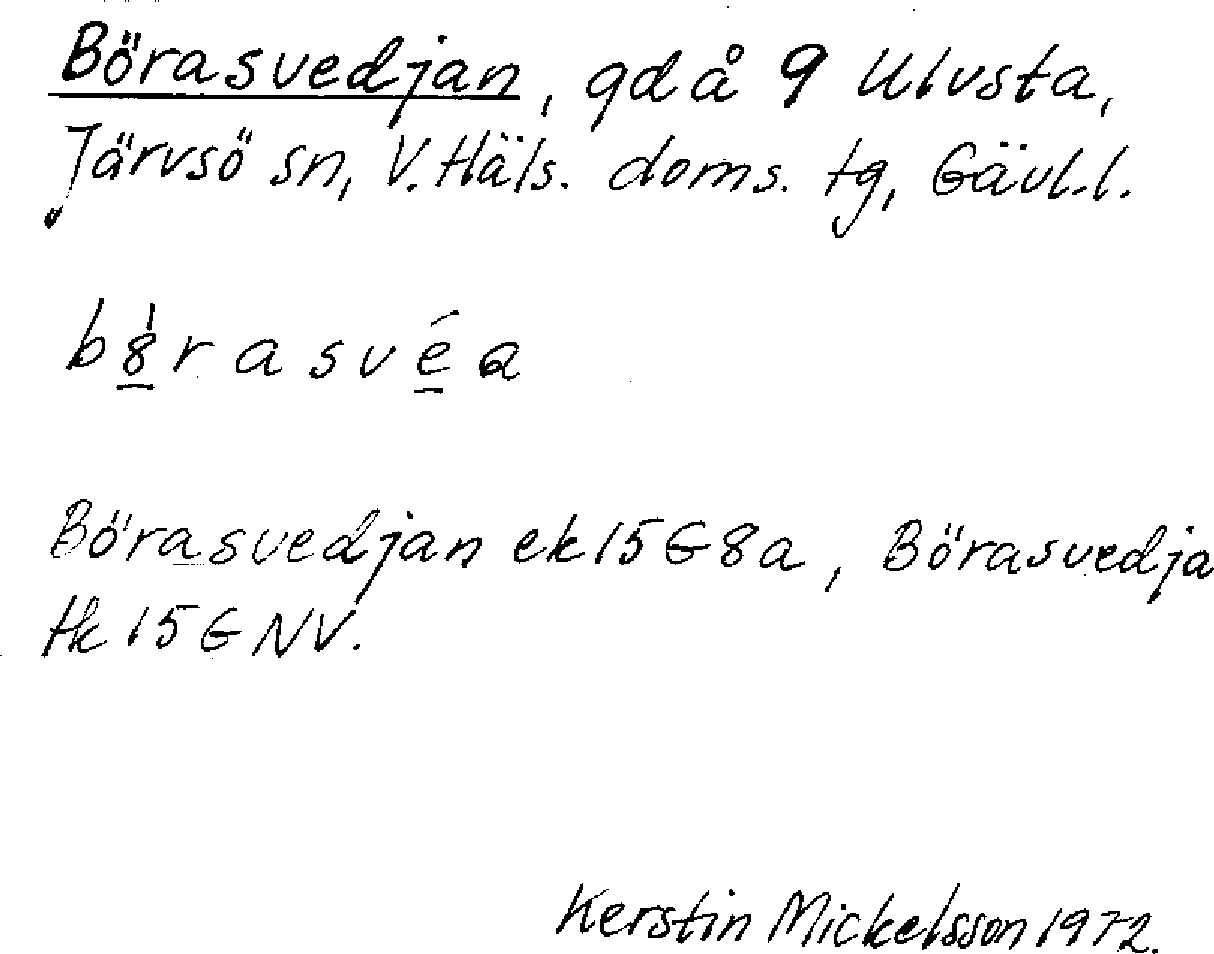 Börasvedjan, gd å 9 Ulvsta,
Järvsö sn, V. Häls. doms. tg, Gävl.l.
b8̲rasvé̲a
Börasvedjan ek 15G8a, Börasvedja
tk 15GNV.
Kerstin Mickelsson 1972.